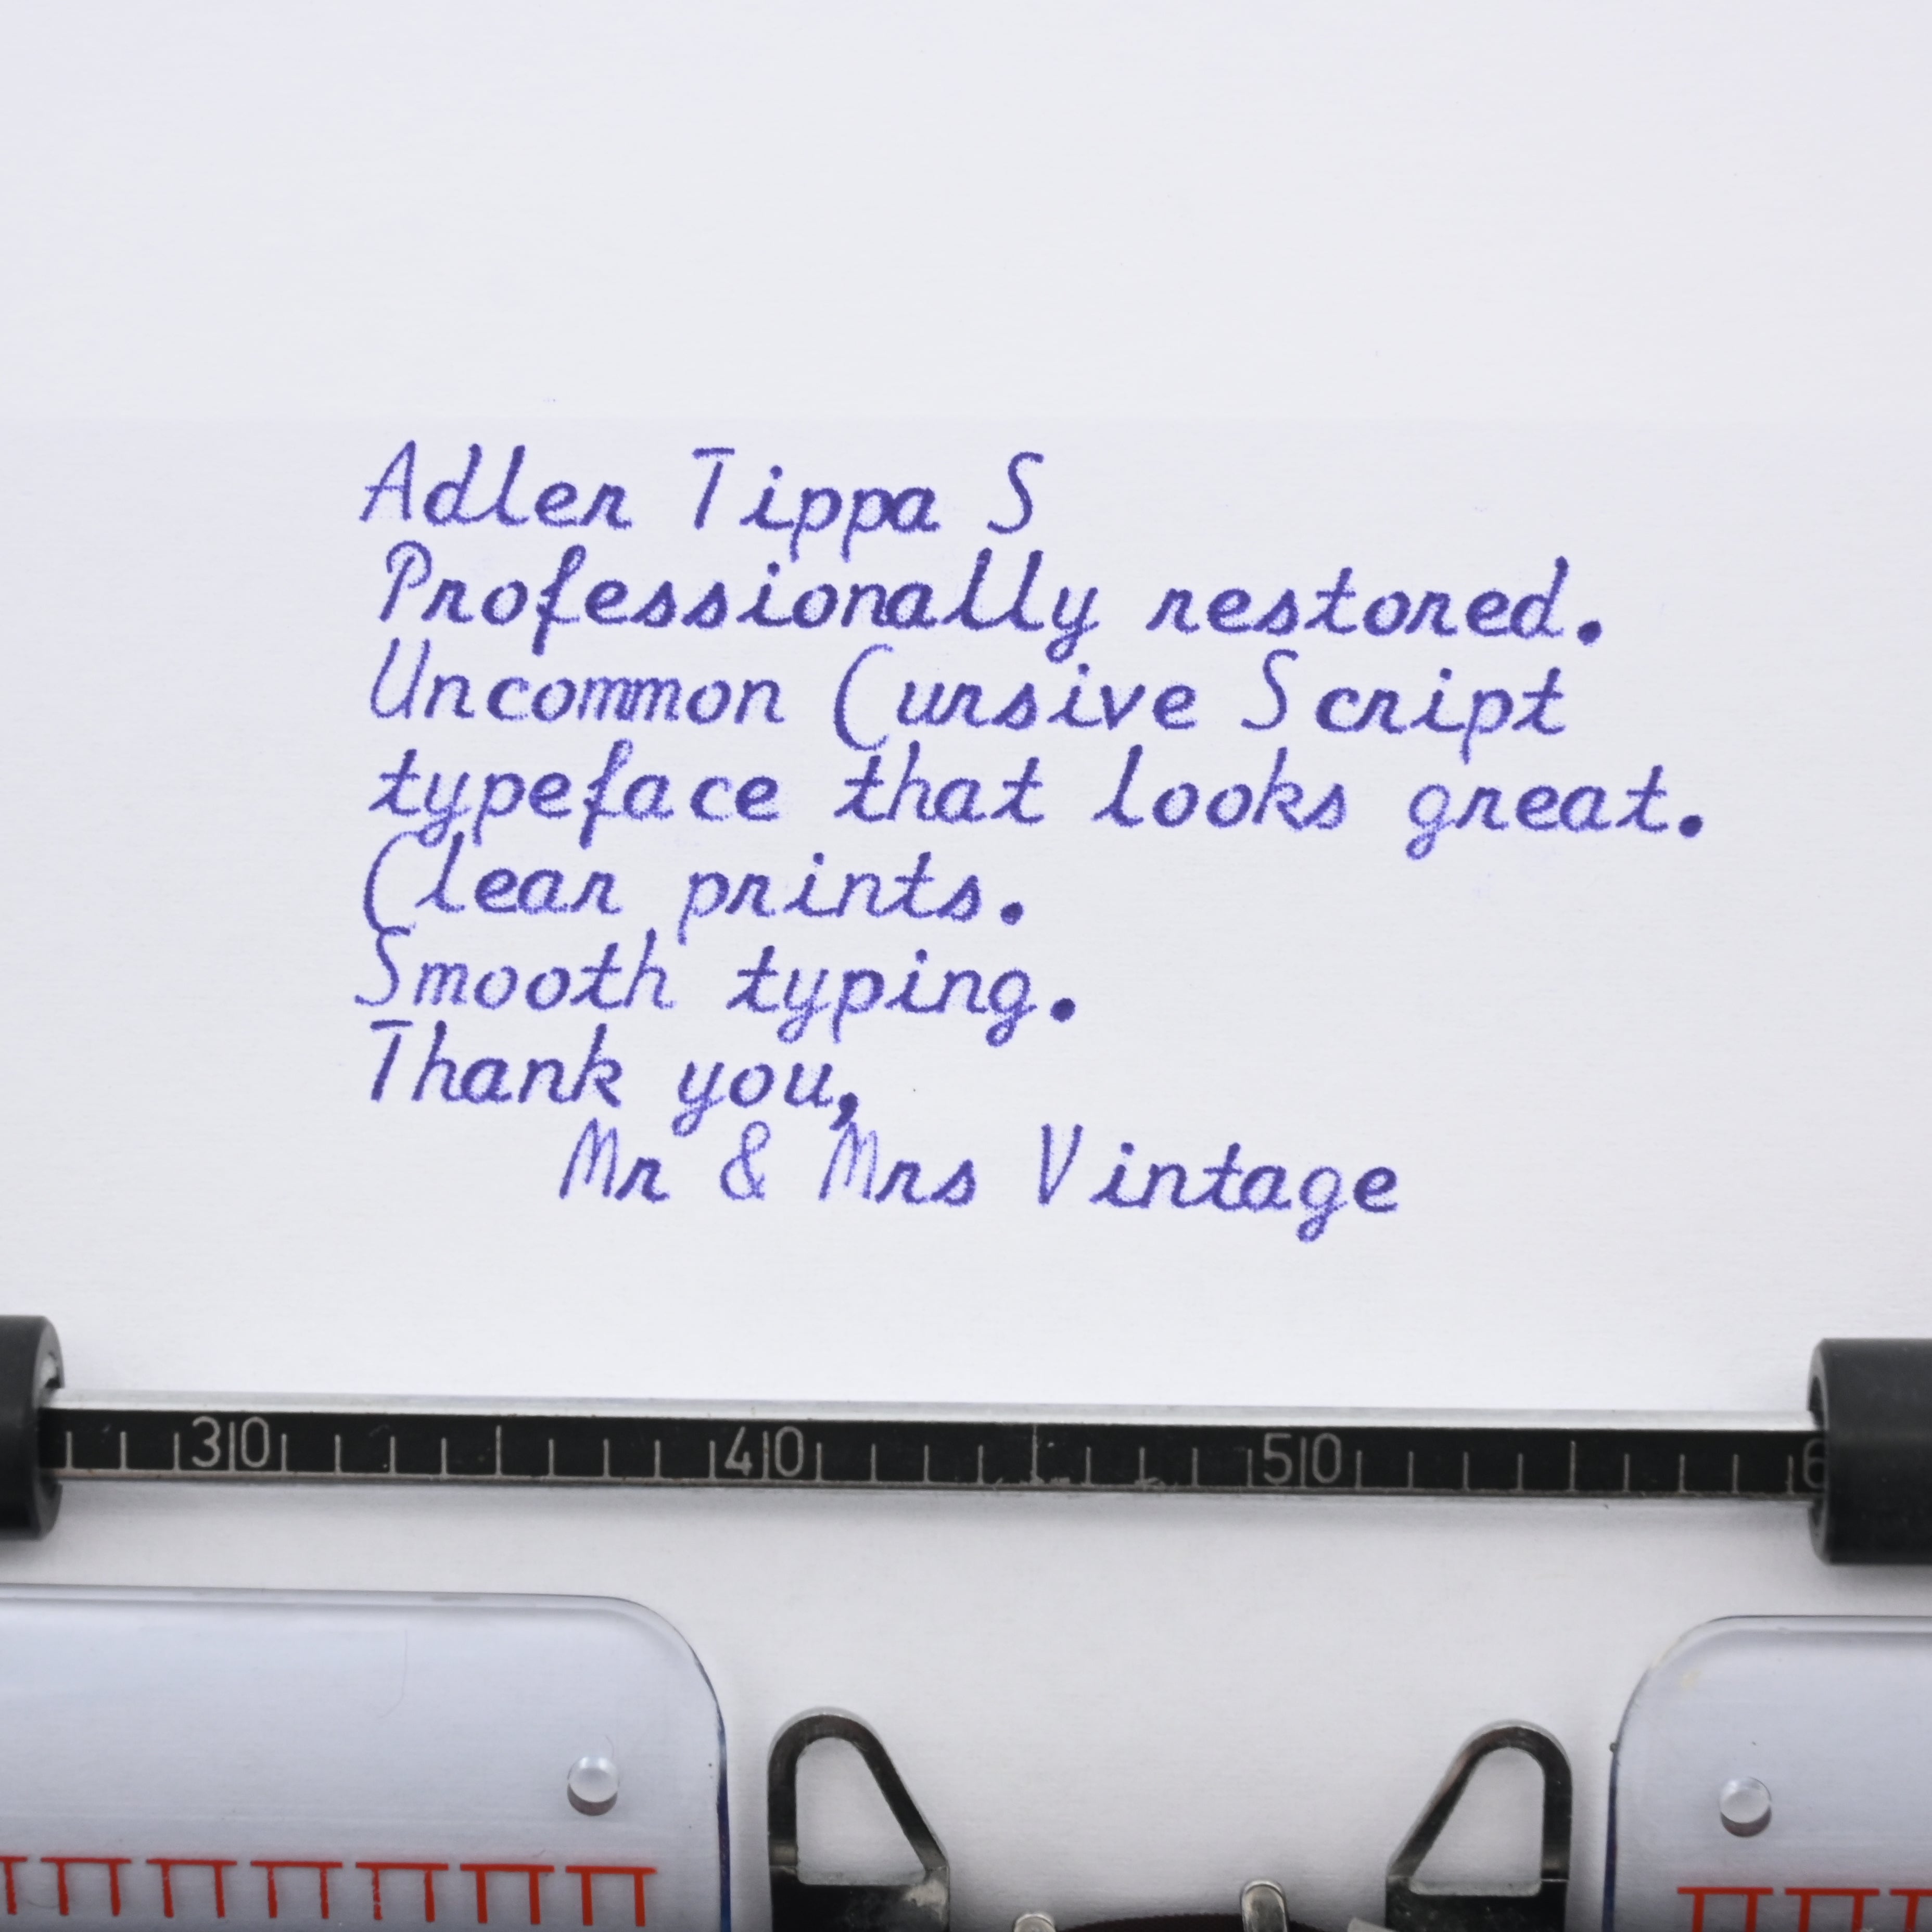 Adler Tippa S
Professionally restored.
Uncommon Cursive Script
typeface that looks great.
Clear prints.
Smooth typing.
Thank you,
Mr & Mrs Vintage
30 40 50 6